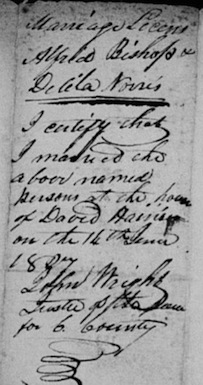 Marriage Licens
Alfred Bishop &
Delila Norris
I certify that
I married the
above named
persons at the house
of David Harris
on the 14th June
1827
John Wright
Justice of the Peace
for C. County